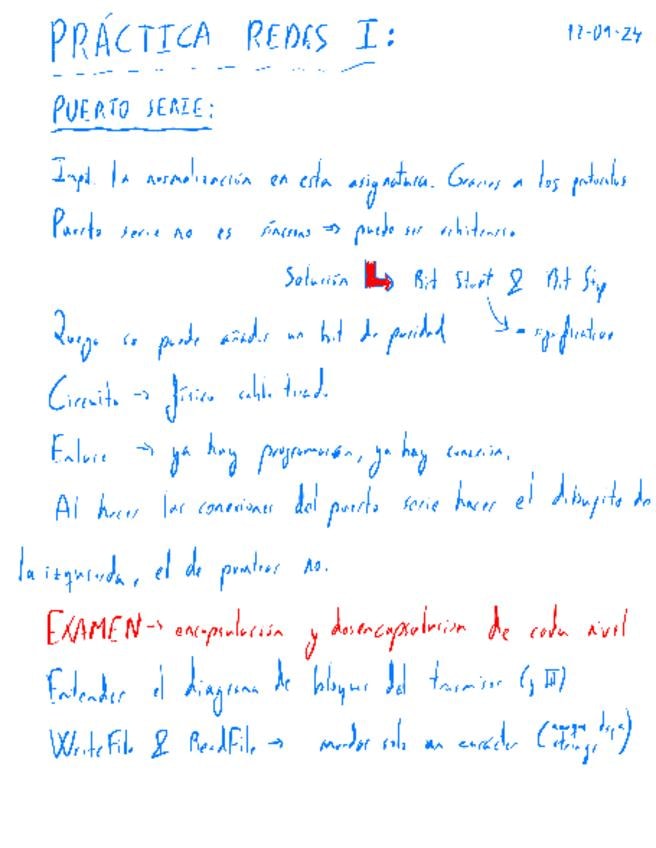 PRÁCTICA REDES I: 12-09-24
PUERTO SERIE:
Impt. la normalización en esta asignatura. Gracias a los protocolos
Puerto serie no es síncrono => puede ser arbitrario.
Solución ↳ Bit Start & Bit Stop
→ - significativo
Luego se puede añadir un bit de paridad
Circuito → físico, cable tirado.
Enlace → ya hay programación, ya hay conexión.
Al hacer las conexiones del puerto serie hacer el dibujito de
la izquierda, el de puntitos no.
EXAMEN → encapsulación y desencapsulación de cada nivel
Entender el diagrama de bloques del (y III)
WriteFile & ReadFile → mandar solo un carácter (aunque diga strings)